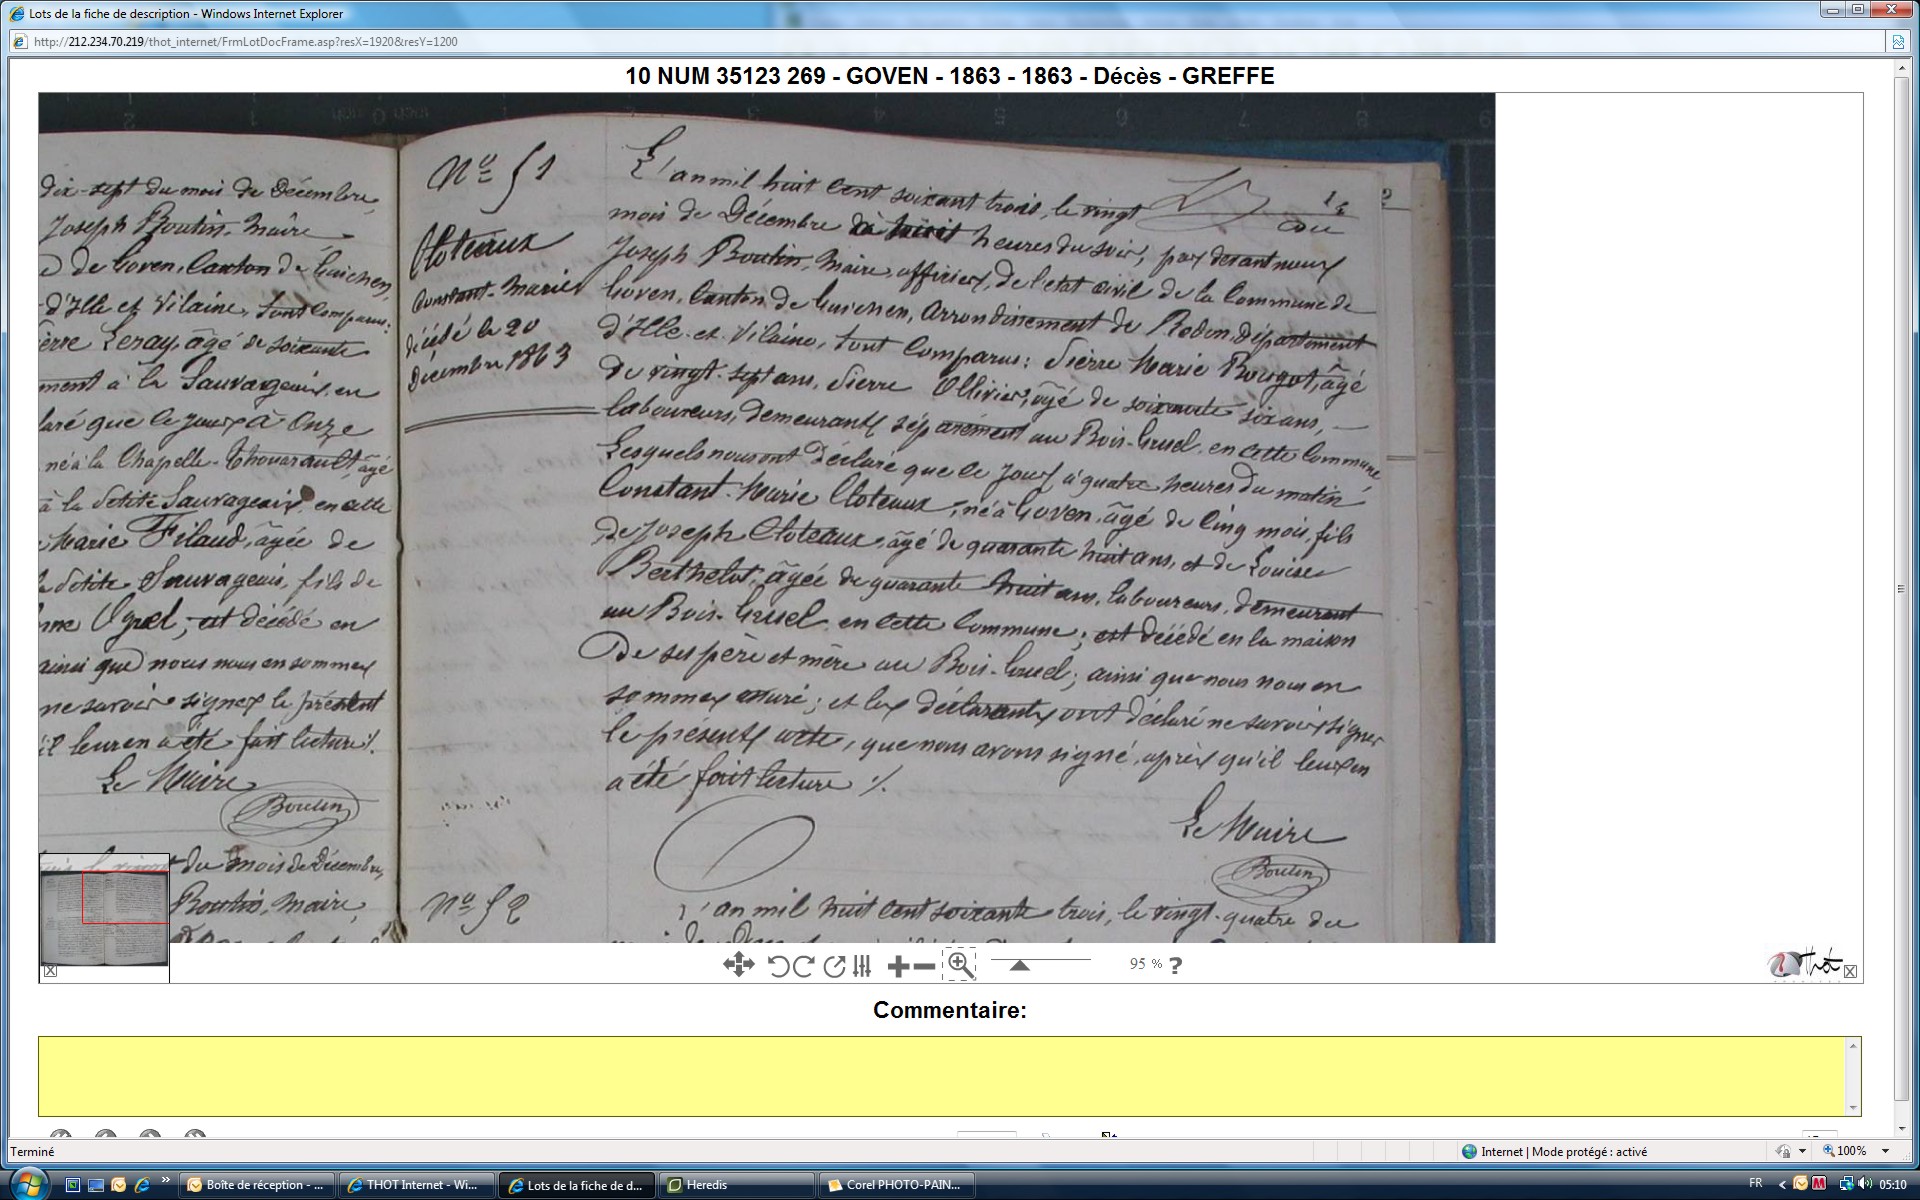 Lots de la fiche de description - Windows Internet Explorer
http://212.234.70.219/thot_internet/FrmLotDocFrame.asp?resX=1920&resY=1200
10 NUM 35123 269 - GOVEN - 1863 - 1863 - Décès - GREFFE
dix-sept du mois de Décembre,
Joseph Boutin, Maire
de Goven, Canton de Guichen,
d'Ille et Vilaine, sont comparus:
Leray, âgé de soixante
à la Sauvageais, en
que ce jour à Onze
né à la Chapelle-Thouarault, âgé
à la Petite Sauvageais, en cette
Marie Filaud, âgée de
Petite Sauvageais, fils de
est décédé en
ainsi que nous nous en sommes
ne savoir signer le présent
leur en a été fait lecture ./.
Le Maire
Boutin
du mois de Décembre,
Boutin, Maire,
No 51
Cloteaux
Constant-Marie
décédé le 20
Décembre 1863
L'an mil huit cent soixant trois, le vingt
du
mois de Décembre à huit heures du soir, par devant nous
Joseph Boutin, Maire, officier, de l'etat civil de la Commune de
Goven, Canton de Guichen, Arrondissement de Redon, Département
d'Ille et Vilaine, sont comparus: Pierre Marie Bougot, âgé
de vingt-sept ans, Pierre Ollivier, âgé de soixante six ans, —
laboureurs, demeurants séparément au Bois-Gruel, en cette Commune
Lesquels nous ont Déclaré que ce jour à quatre heures du matin
Constant-Marie Cloteaux, né à Goven, âgé de Cinq mois, fils
de Joseph Cloteaux, âgé de quarante huit ans, et de Louise
Berthelot, âgée de quarante huit ans, laboureurs, demeurant
au Bois-Gruel, en cette Commune; est décédé en la maison
De ses père et mère au Bois-Gruel; ainsi que nous nous en
sommes assuré; et les déclarants ont déclaré ne savoir signer
le présent acte, que nous avons signé, après qu'il leur en
a été fait lecture ./.
Le Maire
Boutin
No 52
L'an mil huit cent soixante trois, le vingt-quatre du
95 %
?
Thot
Commentaire:
Terminé
Internet | Mode protégé : activé
100%
Boîte de réception - ...
THOT Internet - Wi...
Lots de la fiche de d...
Heredis
Corel PHOTO-PAIN...
FR
05:10